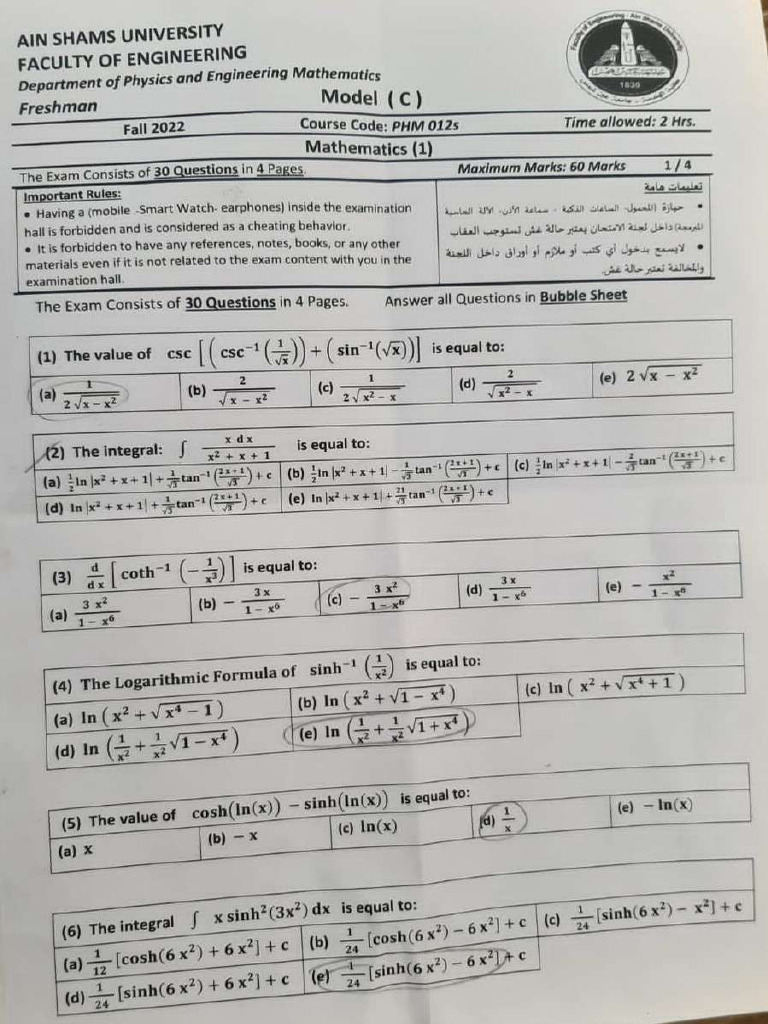 AIN SHAMS UNIVERSITY
FACULTY OF ENGINEERING
Department of Physics and Engineering Mathematics
Freshman Model ( C )
Fall 2022 Course Code: PHM 012s Time allowed: 2 Hrs.
Mathematics (1)
The Exam Consists of 30 Questions in 4 Pages. Maximum Marks: 60 Marks 1 / 4
Important Rules:
• Having a (mobile -Smart Watch- earphones) inside the examination
hall is forbidden and is considered as a cheating behavior.
• It is forbidden to have any references, notes, books, or any other
materials even if it is not related to the exam content with you in the
examination hall.
تعليمات هامة
• حيازة (المحمول- الساعات الذكية - سماعة الأذن- الآلة الحاسبة
المبرمجة) داخل لجنة الامتحان يعتبر حالة غش تستوجب العقاب
• لايسمح بدخول أي كتب أو ملازم أو أوراق داخل اللجنة
والمخالفة تعتبر حالة غش.
The Exam Consists of 30 Questions in 4 Pages. Answer all Questions in Bubble Sheet
(1) The value of csc [(csc⁻¹(1/√x)) + (sin⁻¹(√x))] is equal to:
(a) 1/(2√(x − x²)) (b) 2/√(x − x²) (c) 1/(2√(x² − x)) (d) 2/√(x² − x) (e) 2√(x − x²)
(2) The integral: ∫ x dx/(x² + x + 1) is equal to:
(a) ½ln |x² + x + 1| + 1/√3 tan⁻¹((2x+1)/√3) + c (b) ½ln |x² + x + 1| − 1/√3 tan⁻¹((2x+1)/√3) + c (c) ½ln |x² + x + 1| − 2/√3 tan⁻¹((2x+1)/√3) + c
(d) ln |x² + x + 1| + 1/√3 tan⁻¹((2x+1)/√3) + c (e) ln |x² + x + 1| + 21/√3 tan⁻¹((2x+1)/√3) + c
(3) d/dx [coth⁻¹(−1/x³)] is equal to:
(a) 3x²/(1 − x⁶) (b) − 3x/(1 − x⁶) (c) − 3x²/(1 − x⁶) (d) 3x/(1 − x⁶) (e) − x²/(1 − x⁶)
(4) The Logarithmic Formula of sinh⁻¹(1/x²) is equal to:
(a) ln (x² + √(x⁴ − 1)) (b) ln (x² + √(1 − x⁴)) (c) ln (x² + √(x⁴ + 1))
(d) ln (1/x² + 1/x² √(1 − x⁴)) (e) ln (1/x² + 1/x² √(1 + x⁴))
(5) The value of cosh(ln(x)) − sinh(ln(x)) is equal to:
(a) x (b) − x (c) ln(x) (d) 1/x (e) − ln(x)
(6) The integral ∫ x sinh²(3x²) dx is equal to:
(a) 1/12 [cosh(6 x²) + 6 x²] + c (b) 1/24 [cosh(6 x²) − 6 x²] + c (c) 1/24 [sinh(6 x²) − x²] + c
(d) 1/24 [sinh(6 x²) + 6 x²] + c (e) 1/24 [sinh(6 x²) − 6 x²] + c